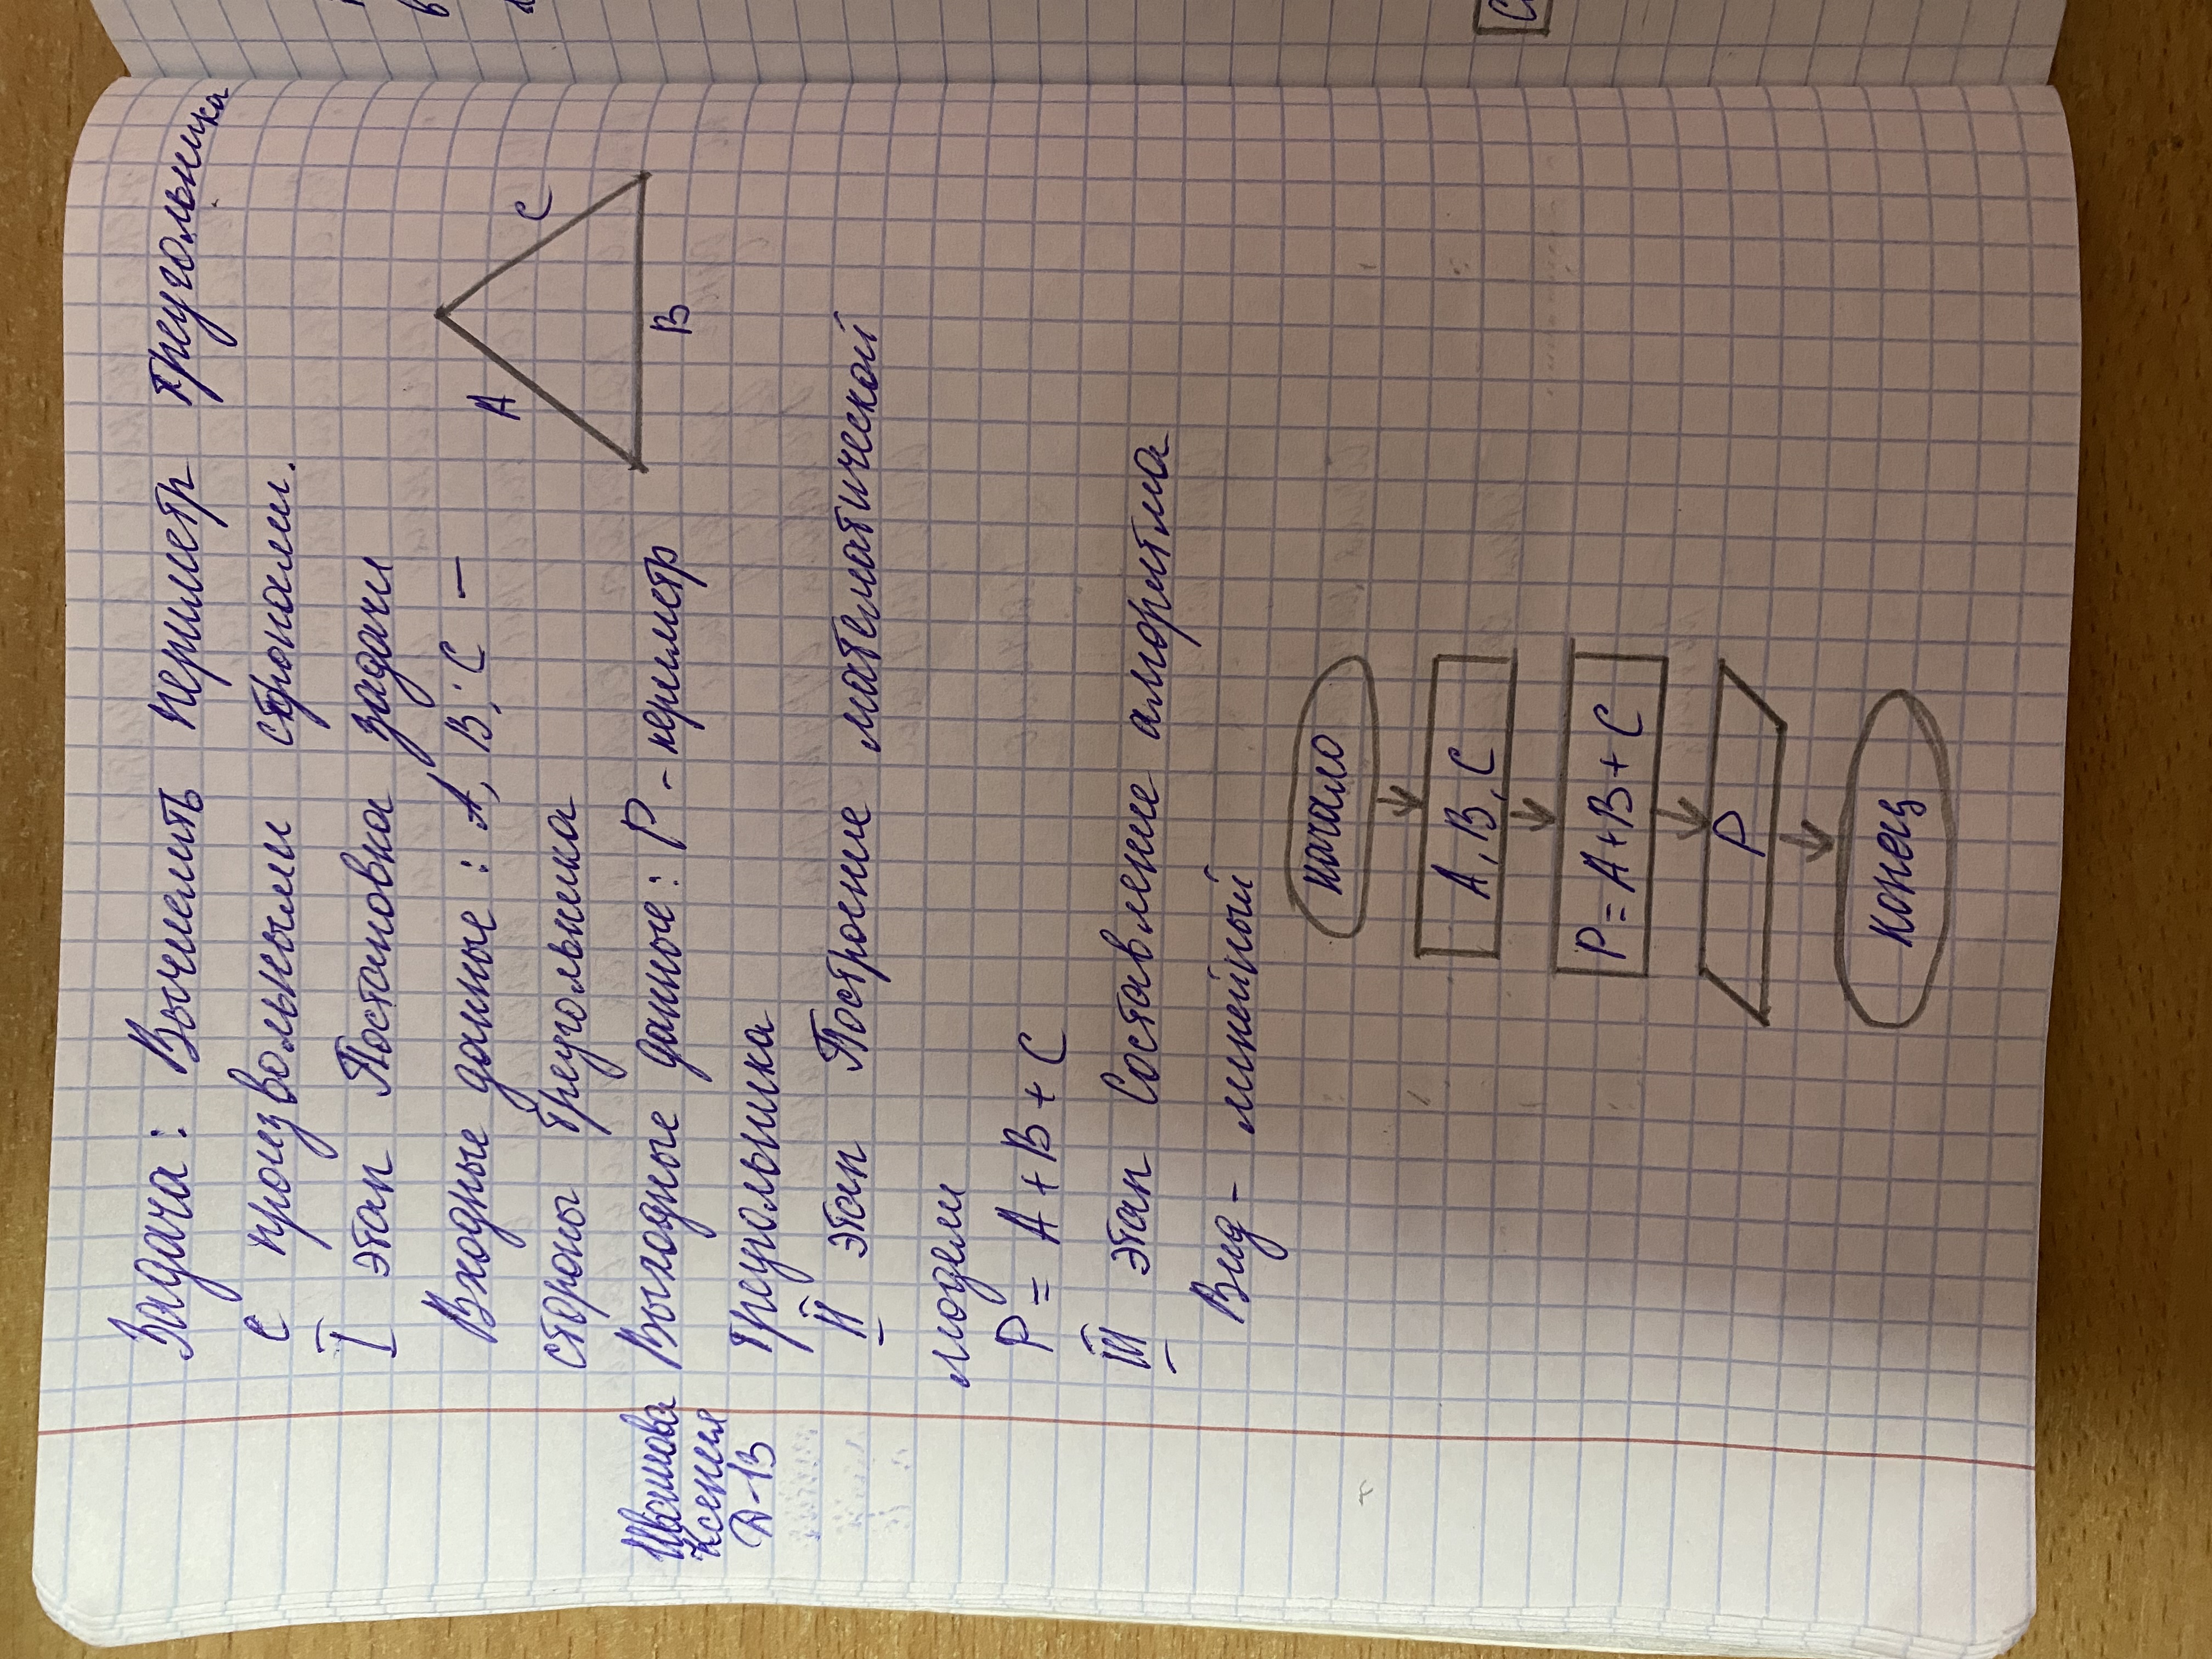 Задача: Вычислить периметр треугольника
с произвольными сторонами.
I этап Постановка задачи
Входные данные: А, В, С —
стороны треугольника
Выходные данные: Р - периметр
треугольника
А
С
В
II этап Построение математической
модели
Р = А + В + С
III этап Составление алгоритма
Вид - линейный
начало
А, В, С
Р = А + В + С
Р
конец
Ксения
Д-13